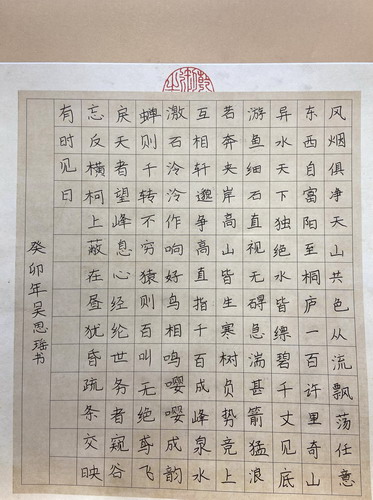 风烟俱净天山共色从流飘荡任意
东西自富阳至桐庐一百许里奇山
异水天下独绝水皆缥碧千丈见底
游鱼细石直视无碍急湍甚箭猛浪
若奔夹岸高山皆生寒树贞势竞上
互相轩邈争高直指千百成峰泉水
激石泠泠作响好鸟相鸣嘤嘤成韵
蝉则千转不穷猿则百叫无绝鸢飞
戾天者望峰息心经纶世务者窥谷
忘反横柯上蔽在昼犹昏疏条交映
有时见日
癸卯年吴思瑶书